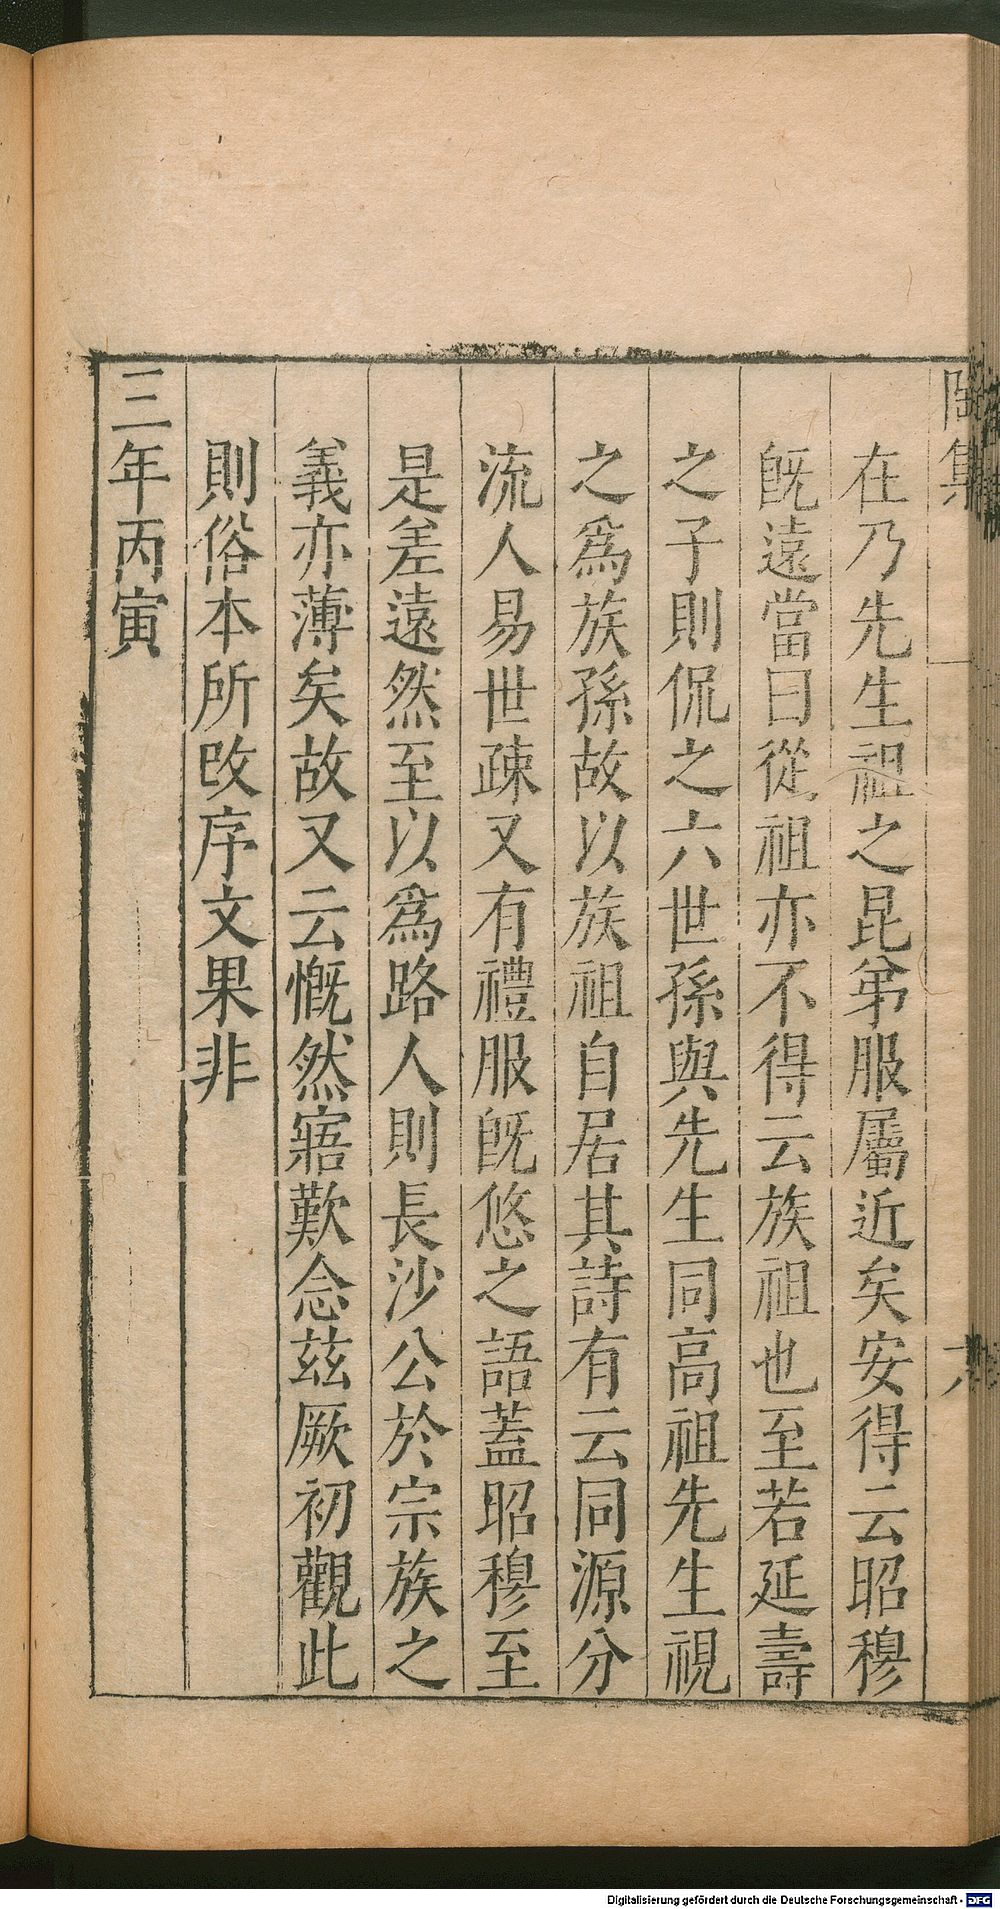 集
在乃先生祖之昆弟服屬近矣安得云昭穆
旣遠當曰從祖亦不得云族祖也至若延壽
之子則侃之六世孫與先生同高祖先生視
之爲族孫故以族祖自居其詩有云同源分
流人易世疎又有禮服旣悠之語蓋昭穆至
是差遠然至以爲路人則長沙公於宗族之
義亦薄矣故又云慨然寤歎念茲厥初觀此
則俗本所改序文果非
三年丙寅
Digitalisierung gefördert durch die Deutsche Forschungsgemeinschaft - DFG